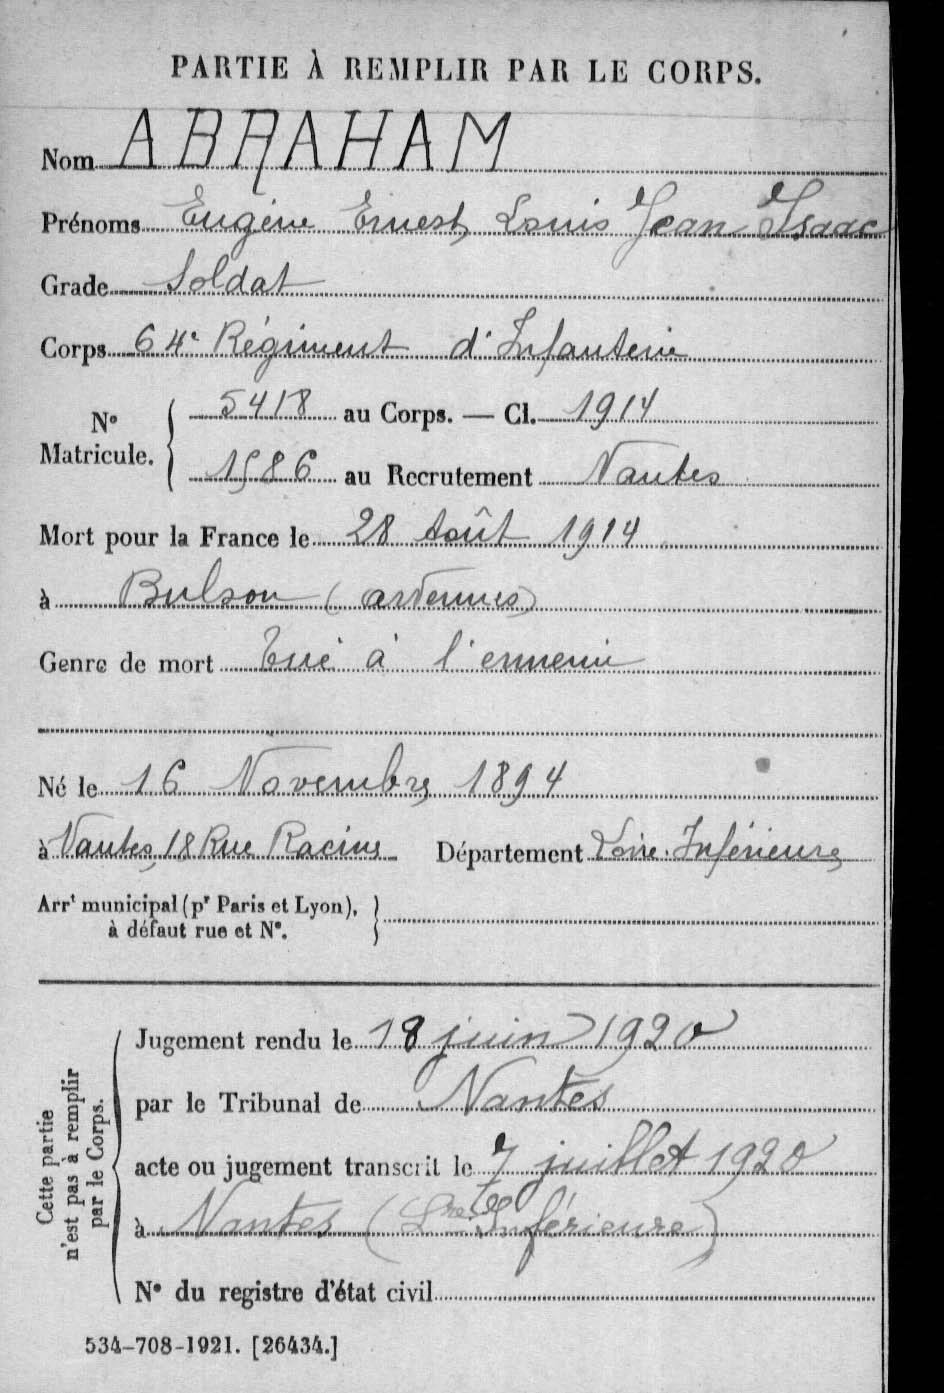 PARTIE À REMPLIR PAR LE CORPS.
Nom ABRAHAM
Prénoms Eugène Ernest, Louis Jean Isaac
Grade Soldat
Corps 64e Régiment d'Infanterie
N° Matricule. { 5418 au Corps. — Cl. 1914
1586 au Recrutement Nantes
Mort pour la France le 28 Août 1914
à Bulson (Ardennes)
Genre de mort Tué à l'ennemi
Né le 16 Novembre 1894
à Nantes, 18 Rue Racine Département Loire-Inférieure
Arrt municipal (pr Paris et Lyon), à défaut rue et N°. }
Cette partie n'est pas à remplir par le Corps.
Jugement rendu le 18 juin 1920
par le Tribunal de Nantes
acte ou jugement transcrit le 7 juillet 1920
à Nantes (Lre Inférieure)
N° du registre d'état civil
534-708-1921. [26434.]